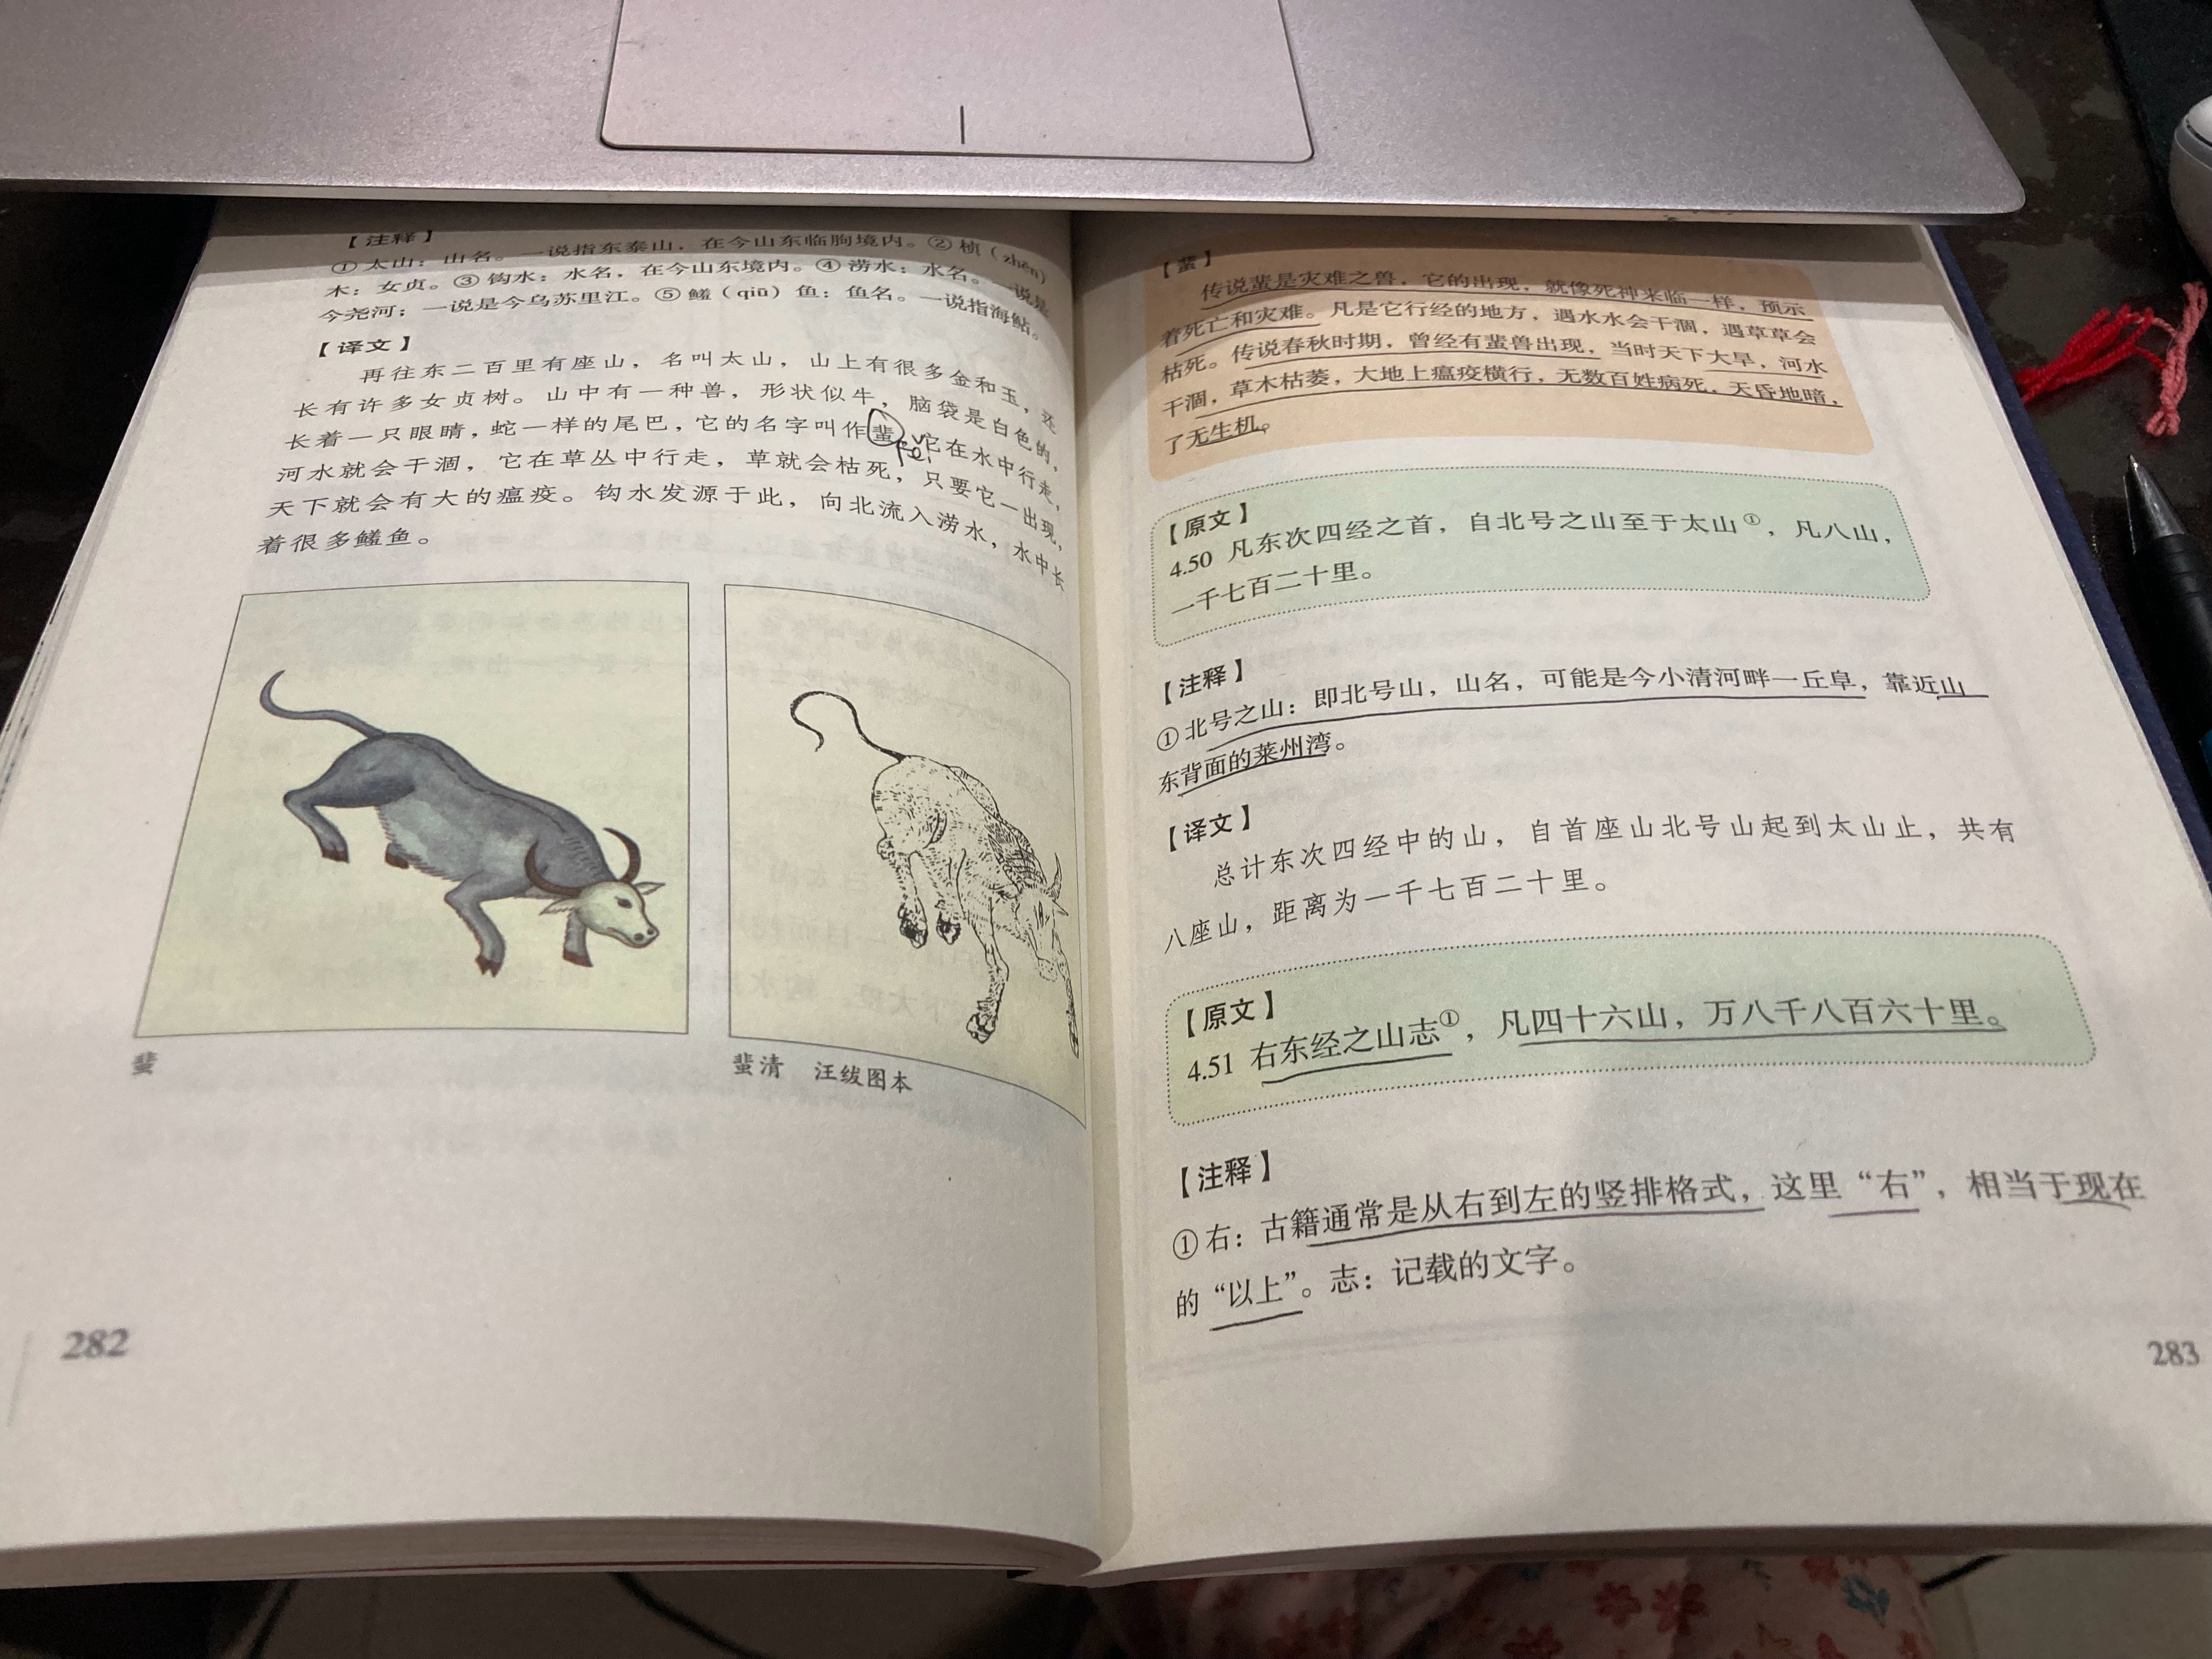 【注释】
①太山：山名。一说指东泰山，在今山东临朐境内。②桢（zhēn）
木：女贞。③钩水：水名，在今山东境内。④涝水：水名。一说是
今尧河；一说是今乌苏里江。⑤鳝（qiū）鱼：鱼名。一说指海鲇。
【译文】
再往东二百里有座山，名叫太山，山上有很多金和玉，还
长有许多女贞树。山中有一种兽，形状似牛，脑袋是白色的，
长着一只眼睛，蛇一样的尾巴，它的名字叫作蜚，它在水中行走，
fěi
河水就会干涸，它在草丛中行走，草就会枯死，只要它一出现，
天下就会有大的瘟疫。钩水发源于此，向北流入涝水，水中长
着很多鳝鱼。
蜚
蜚清 汪绂图本
282
【蜚】
传说蜚是灾难之兽，它的出现，就像死神来临一样，预示
着死亡和灾难。凡是它行经的地方，遇水水会干涸，遇草草会
枯死。传说春秋时期，曾经有蜚兽出现，当时天下大旱，河水
干涸，草木枯萎，大地上瘟疫横行，无数百姓病死，天昏地暗，
了无生机。
【原文】
4.50 凡东次四经之首，自北号之山至于太山①，凡八山，
一千七百二十里。
【注释】
①北号之山：即北号山，山名，可能是今小清河畔一丘阜，靠近山
东背面的莱州湾。
【译文】
总计东次四经中的山，自首座山北号山起到太山止，共有
八座山，距离为一千七百二十里。
【原文】
4.51 右东经之山志①，凡四十六山，万八千八百六十里。
【注释】
①右：古籍通常是从右到左的竖排格式，这里“右”，相当于现在
的“以上”。志：记载的文字。
283